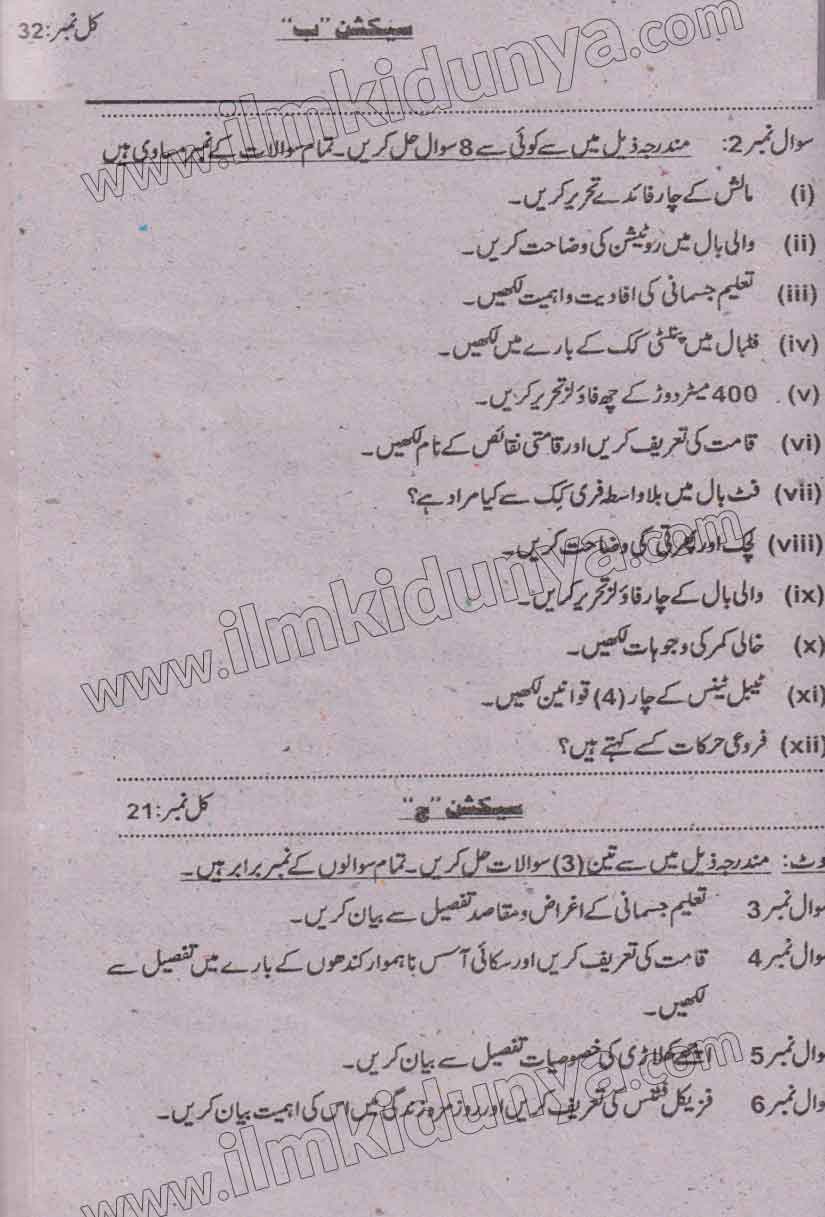 سیکشن "ب" کل نمبر:32
سوال نمبر 2: مندرجہ ذیل میں سے کوئی سے 8 سوال حل کریں۔ تمام سوالات کے نمبر مساوی ہیں
(i) مالش کے چار فائدے تحریر کریں۔
(ii) والی بال میں روٹیشن کی وضاحت کریں۔
(iii) تعلیم جسمانی کی افادیت و اہمیت لکھیں۔
(iv) فٹبال میں پنلٹی کک کے بارے میں لکھیں۔
(v) 400 میٹر دوڑ کے چھ فاؤلز تحریر کریں۔
(vi) قامت کی تعریف کریں اور قامتی نقائص کے نام لکھیں۔
(vii) فٹ بال میں بلاواسطہ فری کِک سے کیا مراد ہے؟
(viii) لچک اور پھرتی کی وضاحت کریں۔
(ix) والی بال کے چار فاؤلز تحریر کرایں۔
(x) خالی کمر کی وجوہات لکھیں۔
(xi) ٹیبل ٹینس کے چار (4) قوانین لکھیں۔
(xii) فروعی حرکات کسے کہتے ہیں؟
سیکشن "ج" کل نمبر:21
وٹ: مندرجہ ذیل میں سے تین (3) سوالات حل کریں۔ تمام سوالوں کے نمبر برابر ہیں۔
وال نمبر 3 تعلیم جسمانی کے اغراض و مقاصد تفصیل سے بیان کریں۔
وال نمبر 4 قامت کی تعریف کریں اور سکائی آسس ناہموار کندھوں کے بارے میں تفصیل سے
لکھیں۔
وال نمبر 5 اچھے کھلاڑی کی خصوصیات تفصیل سے بیان کریں۔
وال نمبر 6 فزیکل فٹنس کی تعریف کریں اور روزمرہ زندگی میں اس کی اہمیت بیان کریں۔
www.ilmkidunya.com
www.ilmkidunya.com
www.ilmkidunya.com